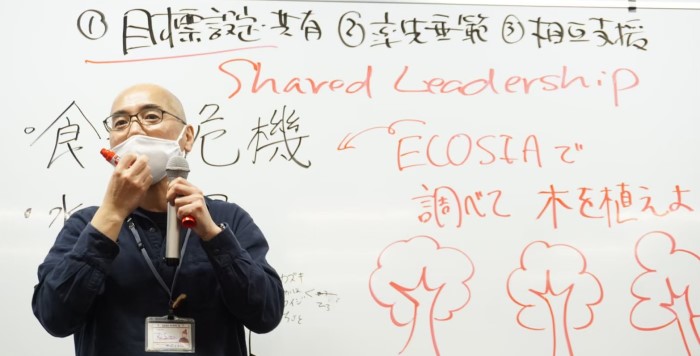 ① 目標設定・共有 ② 率先垂範 ③ 相互支援
Shared Leadership
・食 危機
ECOSIAで
・水
調べて 木を植えよ